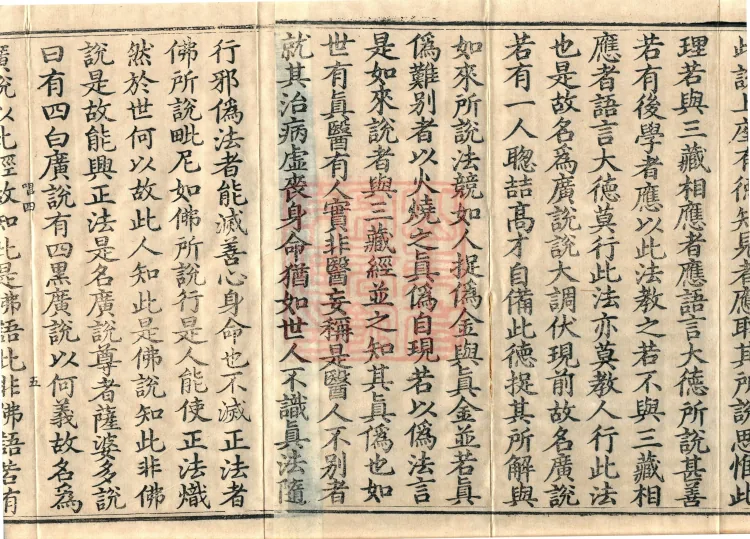 此說上座有德知見者應耳其所說思惟此
理若與三藏相應者應語言大德所說甚善
若有後學者應以此法教之若不與三藏相
應者語言大德莫行此法亦莫教人行此法
也是故名為廣說說大調伏現前故名廣說
若有一人聰喆高才自備此德捉其所解與
如來所說法競如人捉偽金與真金並若真
偽難別者以火燒之真偽自現若以偽法言
是如來說者與三藏經並之知其真偽也如
世有真醫有人實非醫妄稱是醫人不別者
就其治病虛喪身命猶如世人不識真法隨
行邪偽法者能滅善心身命也不滅正法者
佛所說毗尼如佛所說行是人能使正法熾
然於世何以故此人知此是佛說知此非佛
說是故能興正法是名廣說尊者薩婆多說
曰有四白廣說有四黑廣說以何義故名為
唱四
五
廣說以此經故知此是佛語此非佛語若有